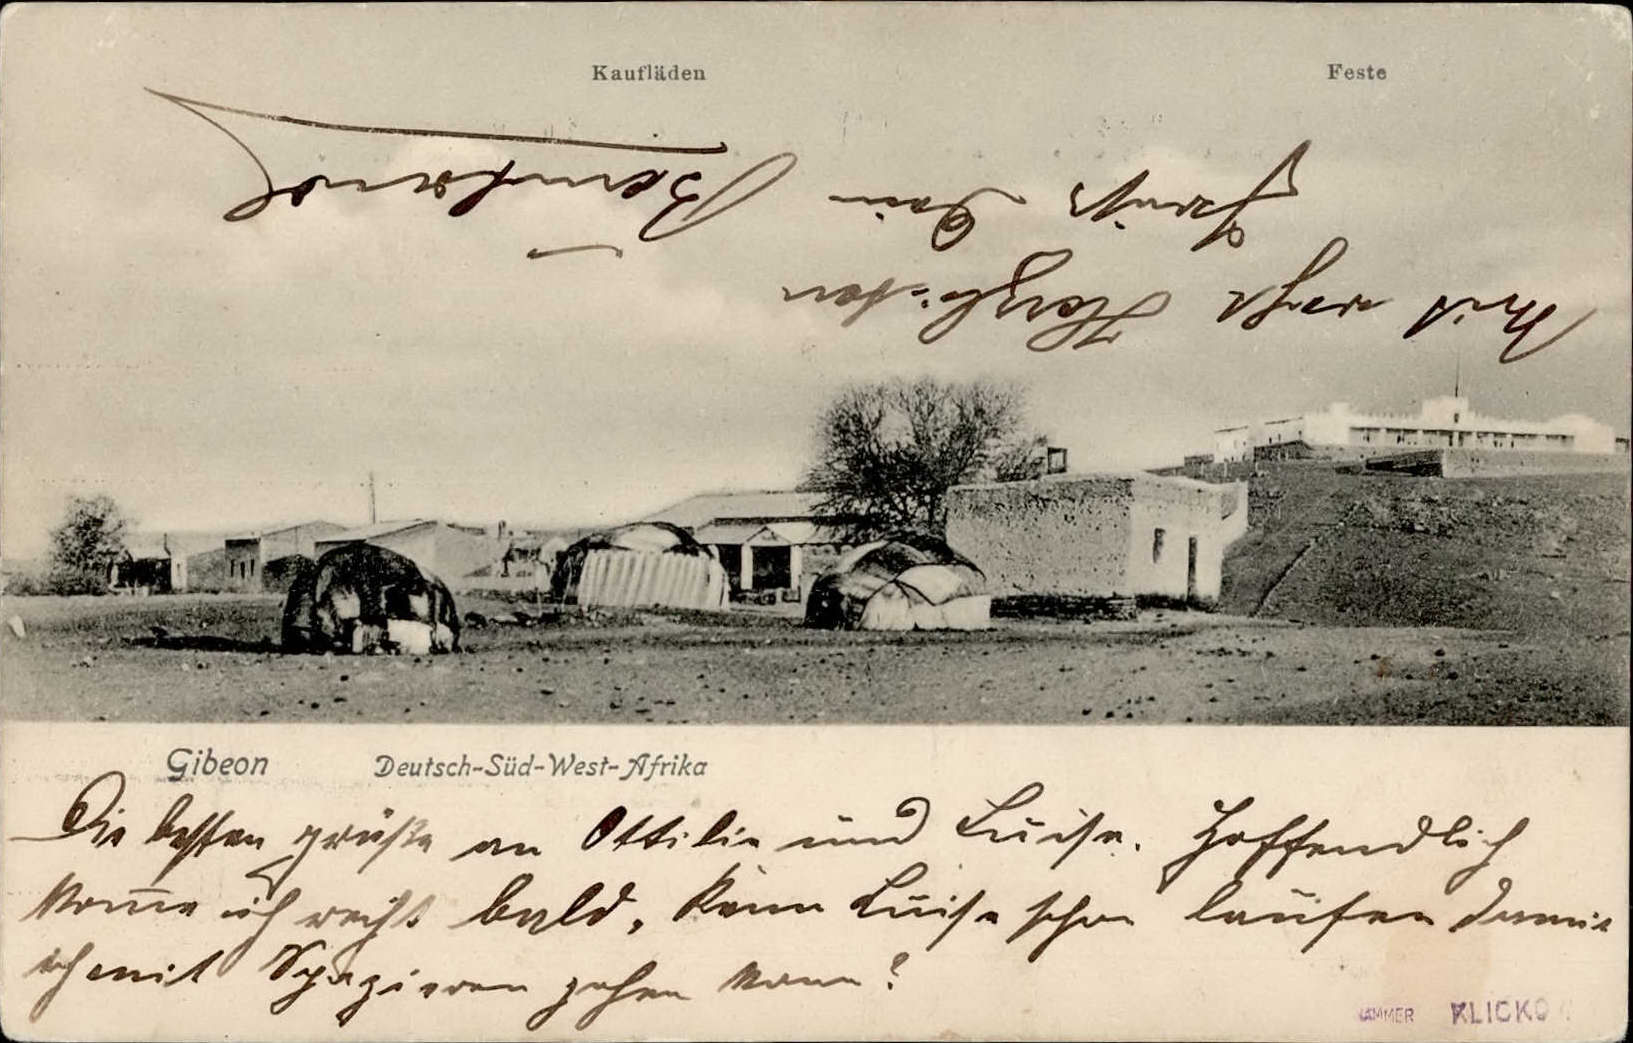 Kaufläden Feste
Gibeon Deutsch-Süd-West-Afrika
Die besten grüße an Ottilie und Luise. Hoffendlich
komme ich recht bald, kann Luise schon laufen damit
ich mit Spazieren gehen kann?
Mit recht Herzlichen
Gruß Dein
KLICKO